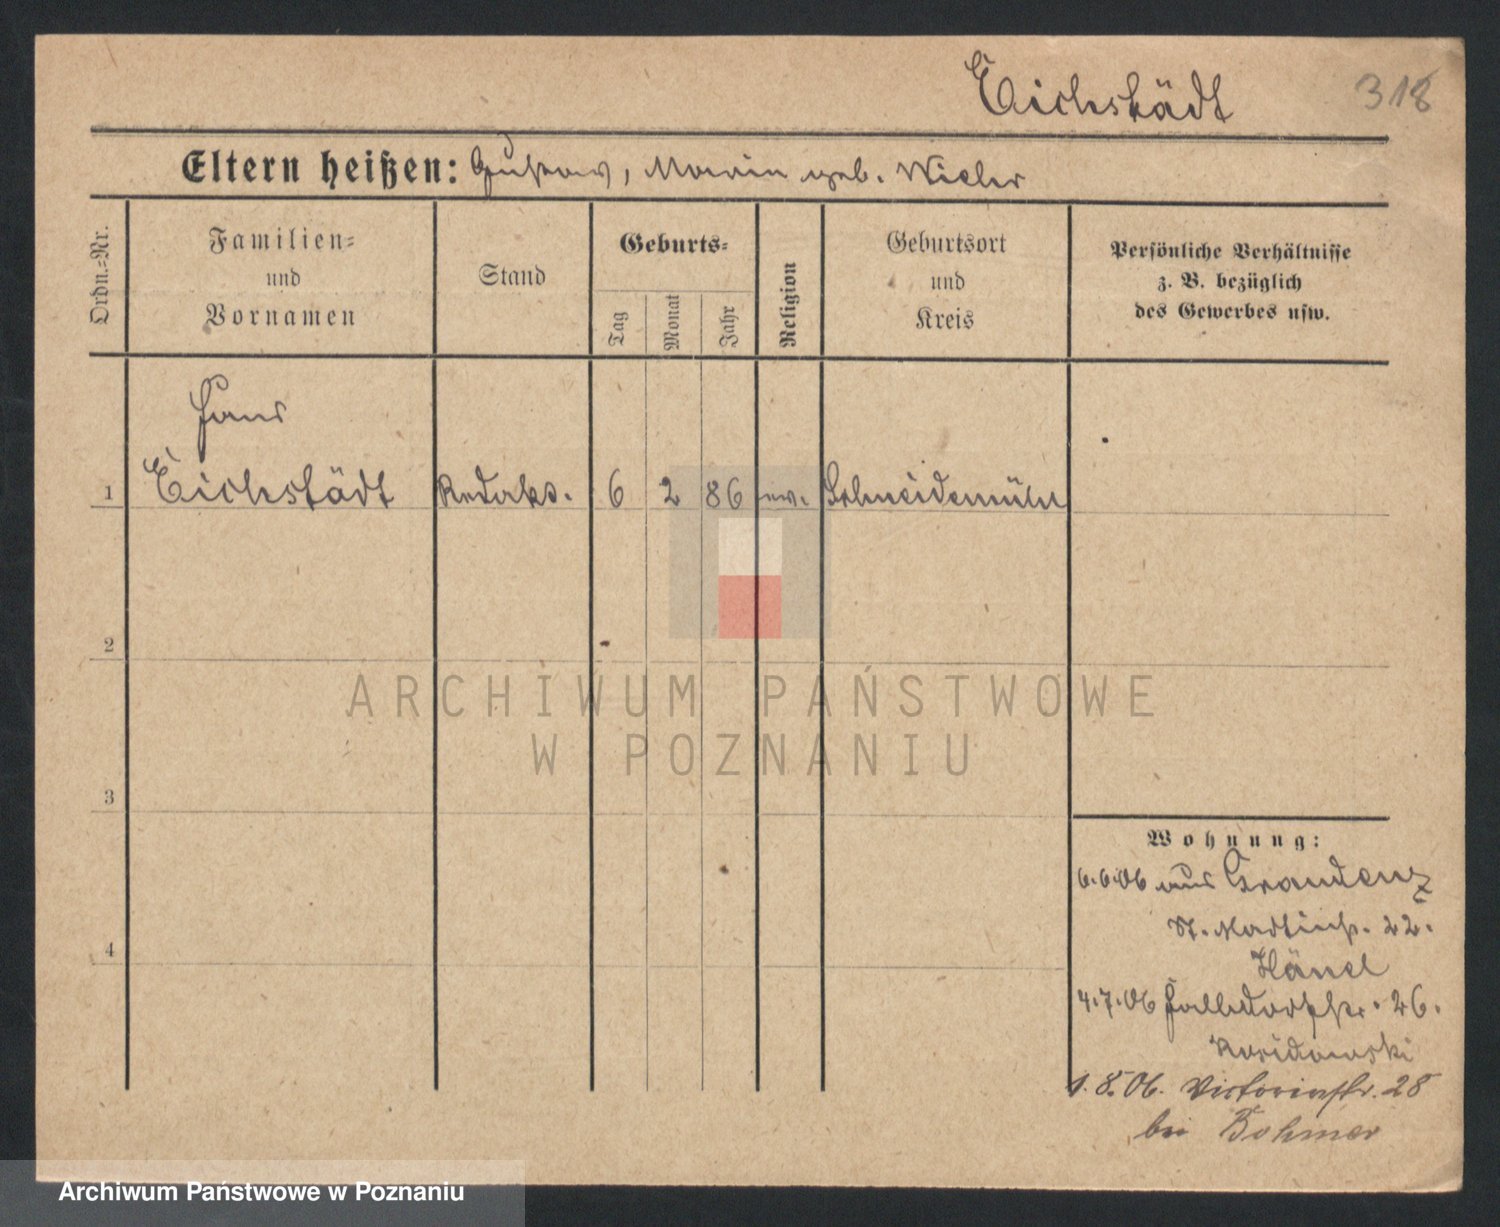 Eichstädt 318
Eltern heißen: Gustav, Marie geb. Wieler
Ordn.-Nr.
Familien-
und
Vornamen
Stand
Geburts-
Tag
Monat
Jahr
Religion
Geburtsort
und
Kreis
Persönliche Verhältnisse
z. B. bezüglich
des Gewerbes usw.
Hans
1 Eichstädt Redakt. 6 2 86 ev. Schneidemühl
2
3
4
Wohnung:
6.6.06 aus Graudenz
St. Martinstr. 22.
Hänel
4.7.06 26.
1.8.06. Victoriastr. 28
bei Bohmer
ARCHIWUM PAŃSTWOWE
W POZNANIU
Archiwum Państwowe w Poznaniu